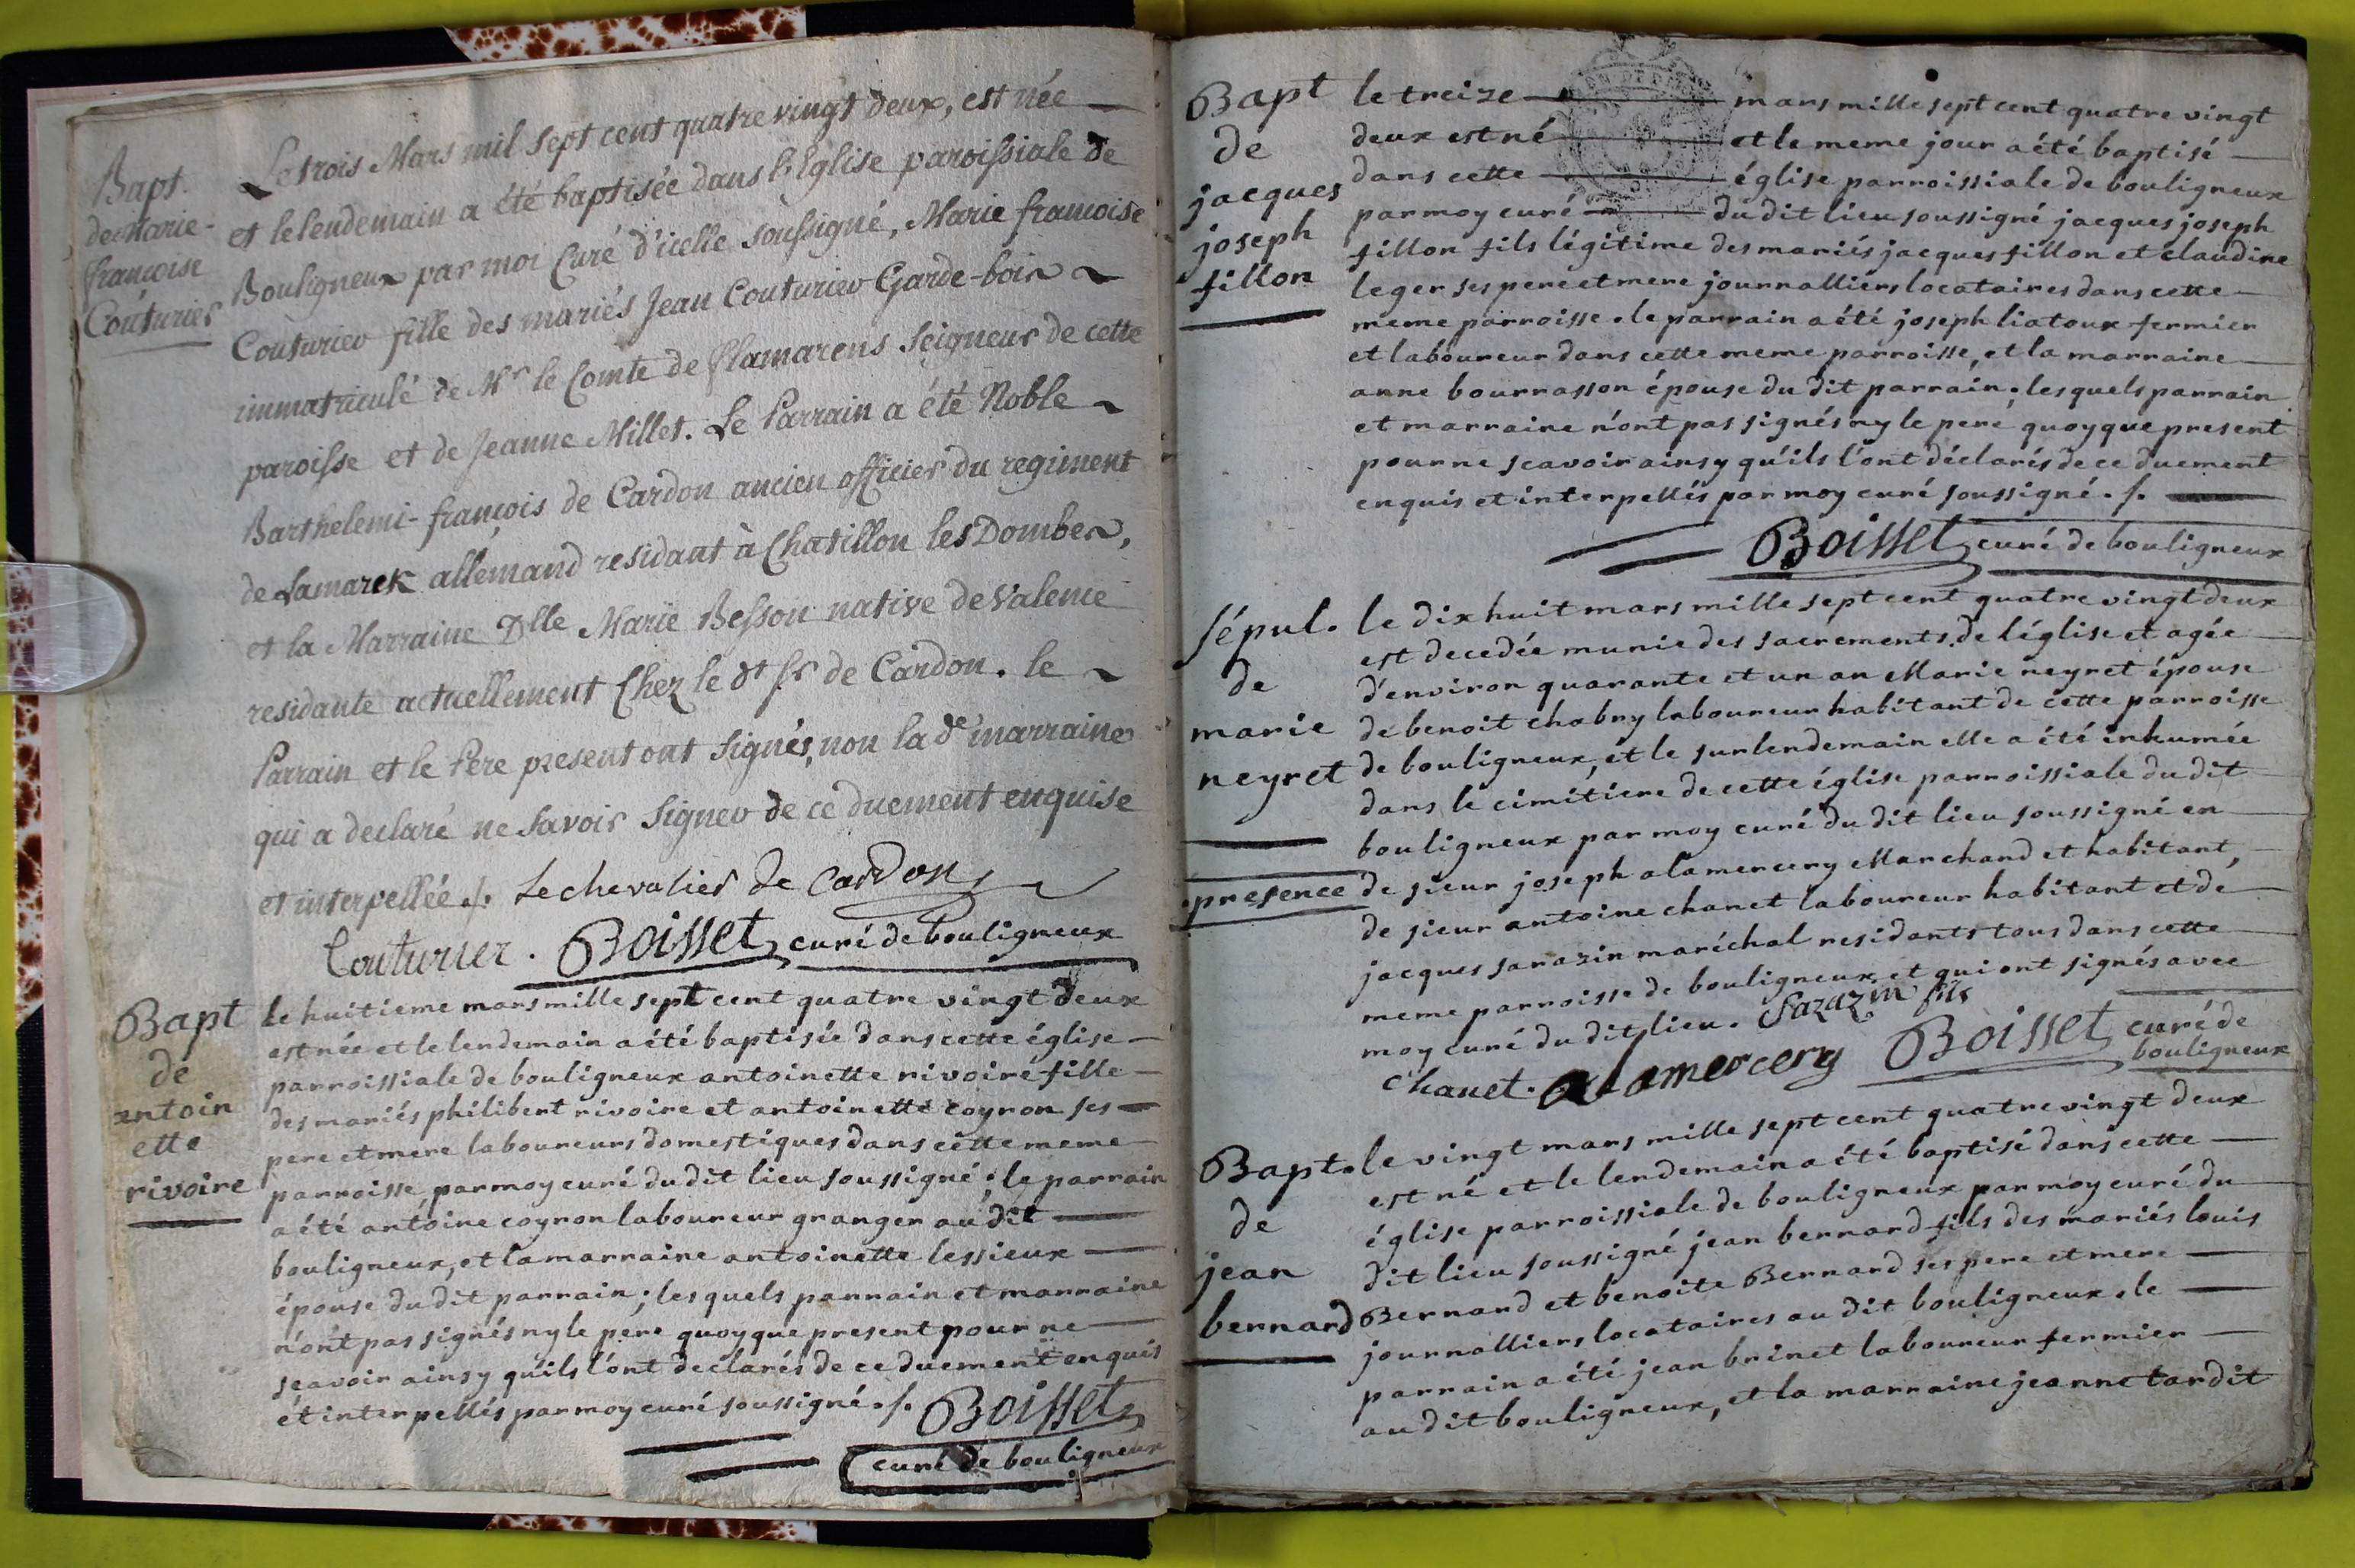 Bapt.
de Marie-
françoise
Couturier
Le trois Mars mil sept cent quatre vingt deux, est née
et le lendemain a été baptisée dans l'Eglise paroissiale de
Bouligneux par moi Curé d'icelle soussigné, Marie francoise
Couturier fille des mariés Jean Couturier Garde-bois
immatriculé de Mr le Comte de flamarens Seigneur de cette
paroisse et de Jeanne Millet. Le Parrain a été Noble
Barthelemi-françois de Cardon ancien officier du regiment
de Lamarck allemand residant à Chatillon les Dombes,
et la Marraine Dlle Marie Besson native de Valence
residante actuellement Chez le dt Sr de Cardon. le
Parrain et le Père present ont signés, non la de marraine
qui a declaré ne savoir signer de ce duement enquise
et interpellée ./. Le chevalier de Cardon
Couturier. Boisset curé de bouligneux
Bapt
de
antoin
ette
rivoire
le huitieme mars mille sept cent quatre vingt deux
est née et le lendemain a été baptisée dans cette église
parroissiale de bouligneux antoinette rivoire fille
des mariés philibert rivoire et antoinette coyron ses
pere et mere laboureurs domestiques dans cette meme
parroisse, par moy curé du dit lieu soussigné; le parrain
a été antoine coyron laboureur granger au dit
bouligneux, et la marraine antoinette lessieux
épouse du dit parrain; les quels parrain et marraine
n'ont pas signés ny le pere quoyque present pour ne
sçavoir ainsy qu'ils l'ont declarés de ce duement enquis
et interpellés par moy curé soussigné ./. Boisset
curé de bouligneux
Bapt
de
jacques
joseph
fillon
le treize mars mille sept cent quatre vingt
deux est né et le meme jour a été baptisé
dans cette église parroissiale de bouligneux
par moy curé du dit lieu soussigné jacques joseph
fillon fils légitime des mariés jacques fillon et claudine
leger ses pere et mere journalliers locataires dans cette
meme parroisse. le parrain a été joseph liatoux fermier
et laboureur dans cette meme parroisse, et la marraine
anne bourrasson épouse du dit parrain; lesquels parrain
et marraine n'ont pas signés ny le pere quoyque present
pour ne scavoir ainsy qu'ils l'ont déclarés de ce duement
enquis et interpellés par moy curé soussigné ./.
Boisset curé de bouligneux
sépul.
de
marie
neyret
le dix huit mars mille sept cent quatre vingt deux
est decedée munie des sacrements de l'église et agée
d'environ quarante et un an Marie neyret épouse
de benoit chabry laboureur habitant de cette parroisse
de bouligneux, et le surlendemain elle a été inhumée
dans le cimitiere de cette église parroissiale du dit
bouligneux par moy curé du dit lieu soussigné en
presence de sieur joseph alamercery Marchand et habitant,
de sieur antoine chanet laboureur habitant et de
jacques sarazin maréchal residants tous dans cette
meme parroisse de bouligneux et qui ont signés avec
moy curé du dit lieu. Sarazin fils
Chanet. alamercery Boisset curé de
bouligneux
Bapt.
de
jean
bernard
le vingt mars mille sept cent quatre vingt deux
est né et le lendemain a été baptisé dans cette
église parroissiale de bouligneux par moy curé du
dit lieu soussigné jean bernard fils des mariés louis
Bernard et benoite Bernard ses pere et mere
journalliers locataires au dit bouligneux. le
parrain a été jean brinet laboureur fermier
au dit bouligneux, et la marraine jeanne tardit